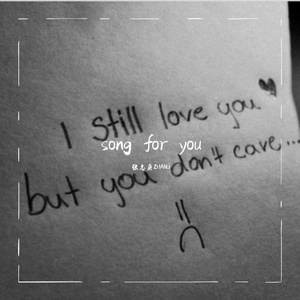 I still love you ♥
song for you
张志兵ZHANG
but you don't care...
=(